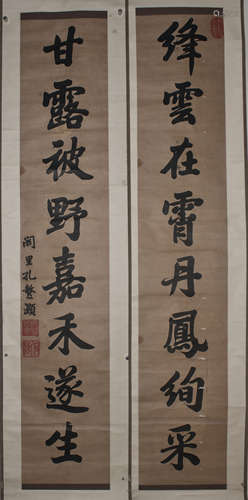 绛雲在霄丹鳳絢采
甘露被野嘉禾遂生
闕里孔繁灝